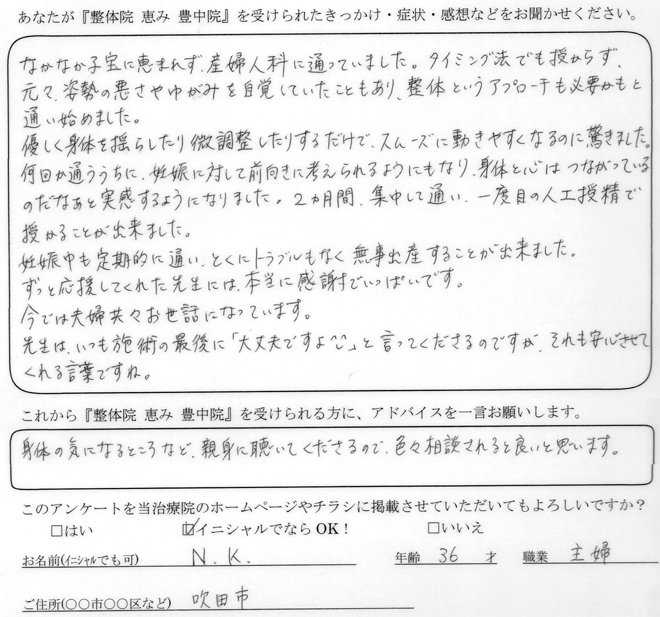 あなたが『整体院 恵み 豊中院』を受けられたきっかけ・症状・感想などをお聞かせください。
なかなか子宝に恵まれず、産婦人科に通っていました。タイミング法でも授からず、
元々、姿勢の悪さやゆがみを自覚していたこともあり、整体というアプローチも必要かもと
通い始めました。
優しく身体を揺らしたり微調整したりするだけで、スムーズに動きやすくなるのに驚きました。
何回か通ううちに、妊娠に対して前向きに考えられるようにもなり、身体と心はつながっている
のだなあと実感するようになりました。2ヵ月間、集中して通い、一度目の人工授精で
授かることが出来ました。
妊娠中も定期的に通い、とくにトラブルもなく無事出産することが出来ました。
ずっと応援してくれた先生には、本当に感謝でいっぱいです。
今では夫婦共々お世話になっています。
先生は、いつも施術の最後に「大丈夫ですよ^^」と言ってくださるのですが、それも安心させて
くれる言葉ですね。
これから『整体院 恵み 豊中院』を受けられる方に、アドバイスを一言お願いします。
身体の気になるところなど、親身に聴いてくださるので、色々相談されると良いと思います。
このアンケートを当治療院のホームページやチラシに掲載させていただいてもよろしいですか?
□はい ☑イニシャルでなら OK! □いいえ
お名前(イニシャルでも可) N.K. 年齢 36 才 職業 主婦
ご住所(〇〇市〇〇区など) 吹田市